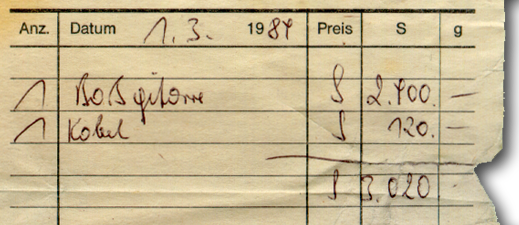 Anz. Datum 1.3. 1984 Preis S g
1 Baßgitarre S 2.900.—
1 Kabel S 120.—
S 3.020